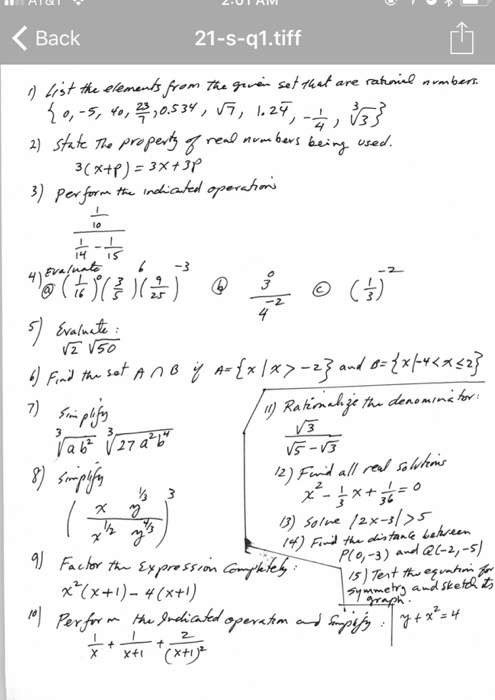 AT&T 2:01 AM
Back
21-s-q1.tiff
1) List the elements from the given set that are rational numbers.
{0, -5, 40, 23/7, 0.534, √7, 1.24̅, -1/4, ∛3}
2) State the property of real numbers being used.
3(x+p) = 3x+3p
3) perform the indicated operations
(1/10) / (1/14 - 1/15)
4) Evaluate
ⓐ (1/16)^0 (3/5)^6 (9/25)^-3 ⓑ 3^0 / 4^-2 ⓒ (1/3)^-2
5) Evaluate:
√2 √50
6) Find the set A ∩ B if A={x|x>-2} and B={x|-4<x≤2}
7) Simplify
∛(ab²) ∛(27a²b⁴)
8) Simplify
(x y^1/3 / x^1/2 y^4/3)^3
9) Factor the Expression Completely:
x²(x+1) - 4(x+1)
10) Perform the Indicated operation and Simplify:
1/x + 1/(x+1) + 2/(x+1)²
11) Rationalize the denominator:
√3 / (√5-√3)
12) Find all real solutions
x² - 1/3 x + 1/36 = 0
13) Solve |2x-3|>5
14) Find the distance between
P(0,-3) and Q(-2,-5)
15) Test the equation for
symmetry and sketch its
graph.
y+x²=4